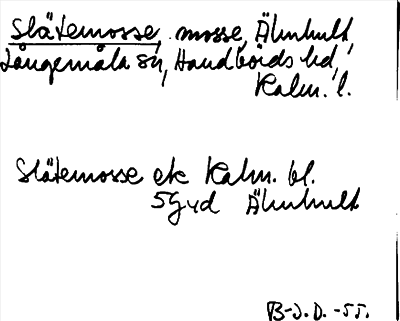 Slätemosse, mosse, Älmhult,
Långemåla sn, Handbörds hd,
Kalm. l.
Slätemosse ek Kalm. bl.
5G vd Älmhult
B-J.D. -55.